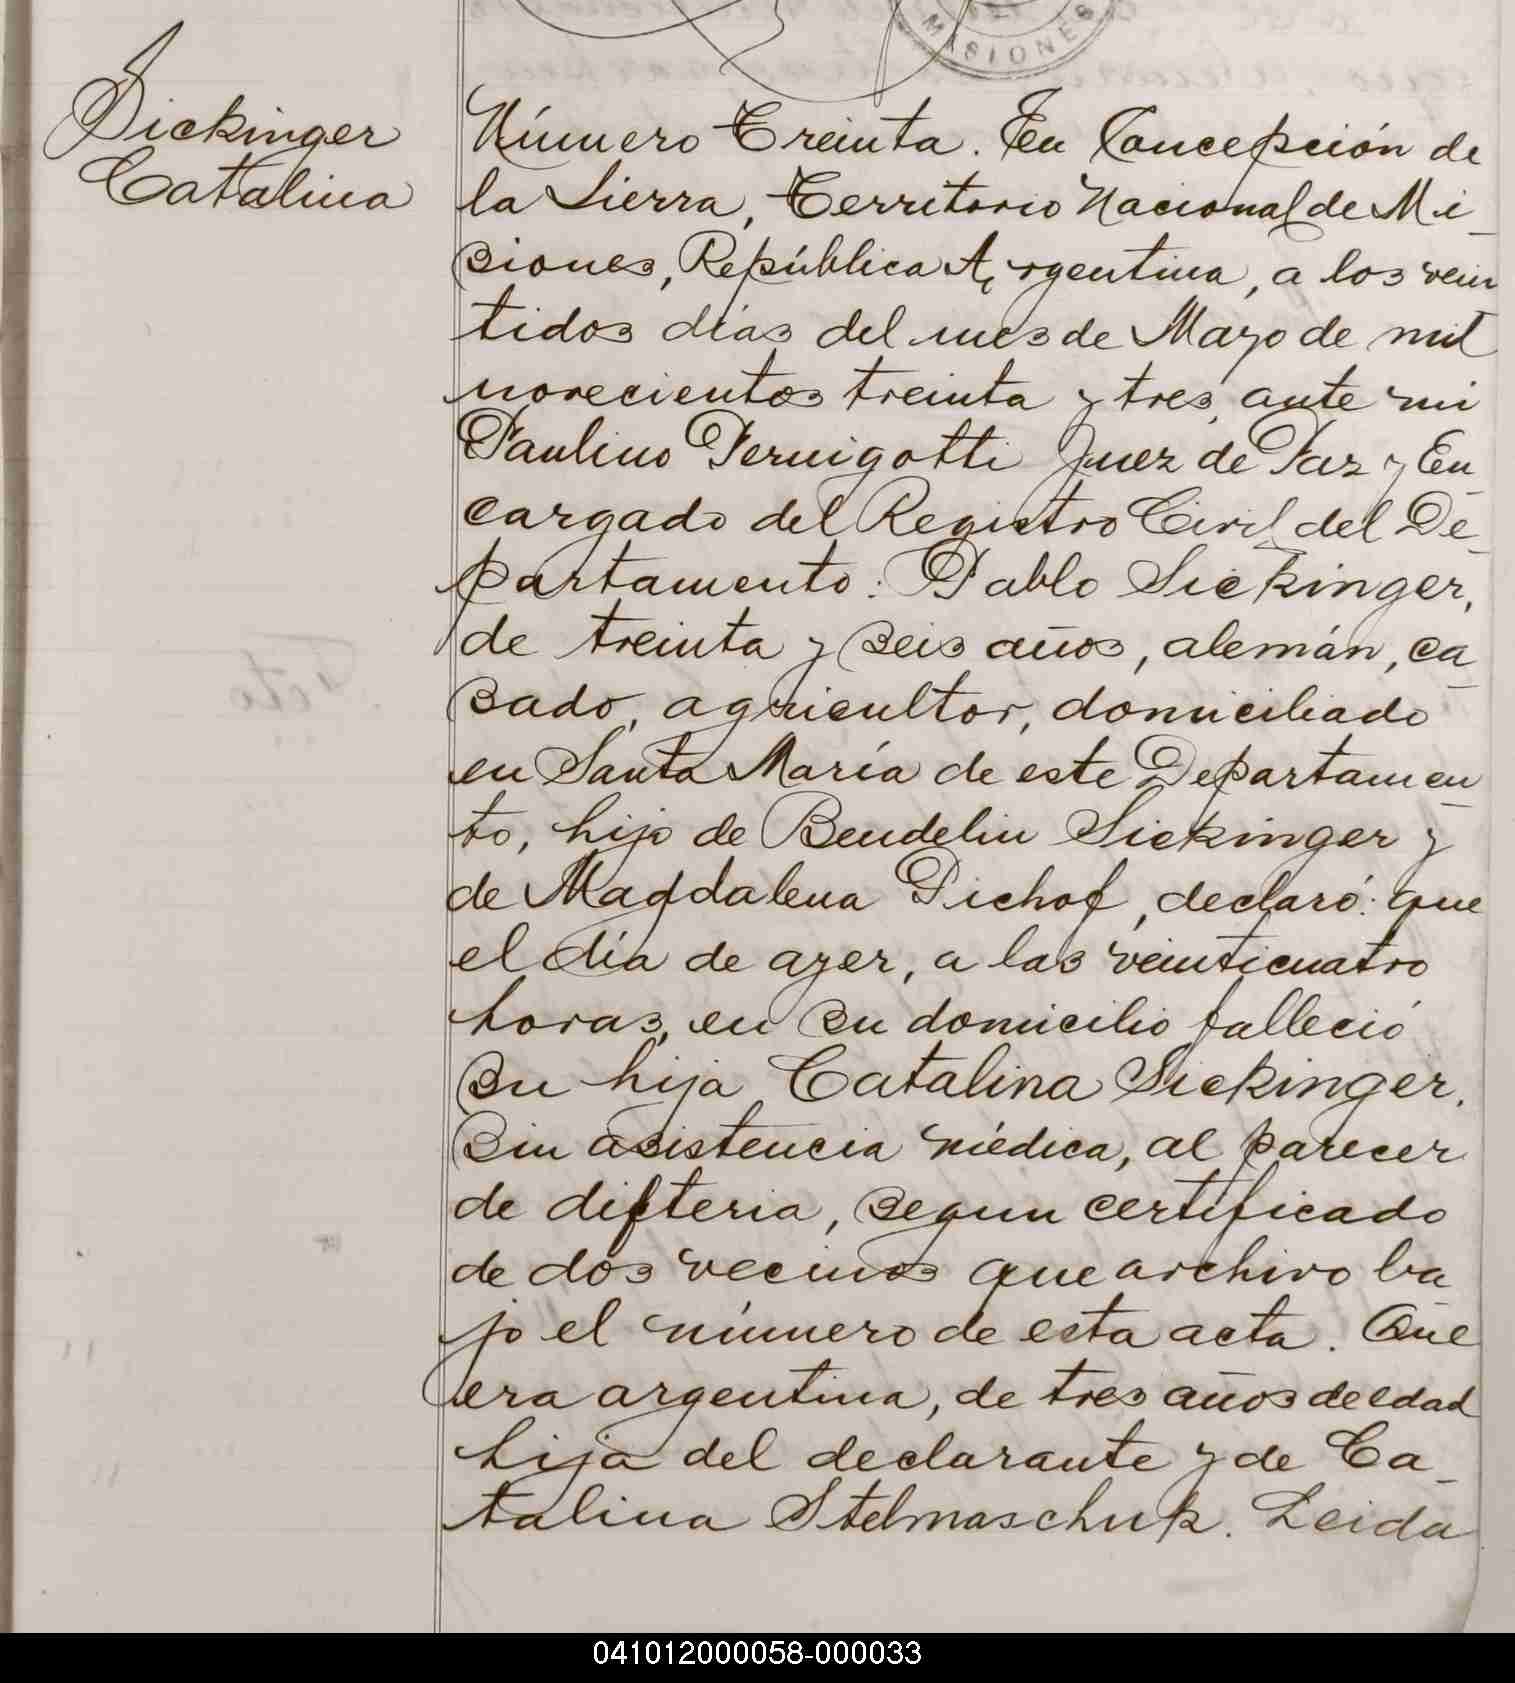 MISIONES
Sickinger
Catalina
Número Treinta. En Concepción de
la Sierra, Territorio Nacional de Mi-
siones, República Argentina, a los vein
tidos días del mes de Mayo de mil
novecientos treinta y tres, ante mi
Paulino Pernigotti Juez de Paz y En-
cargado del Registro Civil del De-
partamento: Pablo Sickinger,
de treinta y seis años, alemán, ca-
sado, agricultor, domiciliado
en Santa María de este Departamen-
to, hijo de Bendelin Sickinger y
de Magdalena Pichof, declaró: que
el día de ayer, a las veinticuatro
horas, en su domicilio falleció
su hija Catalina Sickinger,
sin asistencia médica, al parecer
de difteria, segun certificado
de dos vecinos que archivo ba-
jo el número de esta acta. Que
era argentina, de tres años de edad
hija del declarante y de Ca-
talina Stelmaschuk. Leida
041012000058-000033